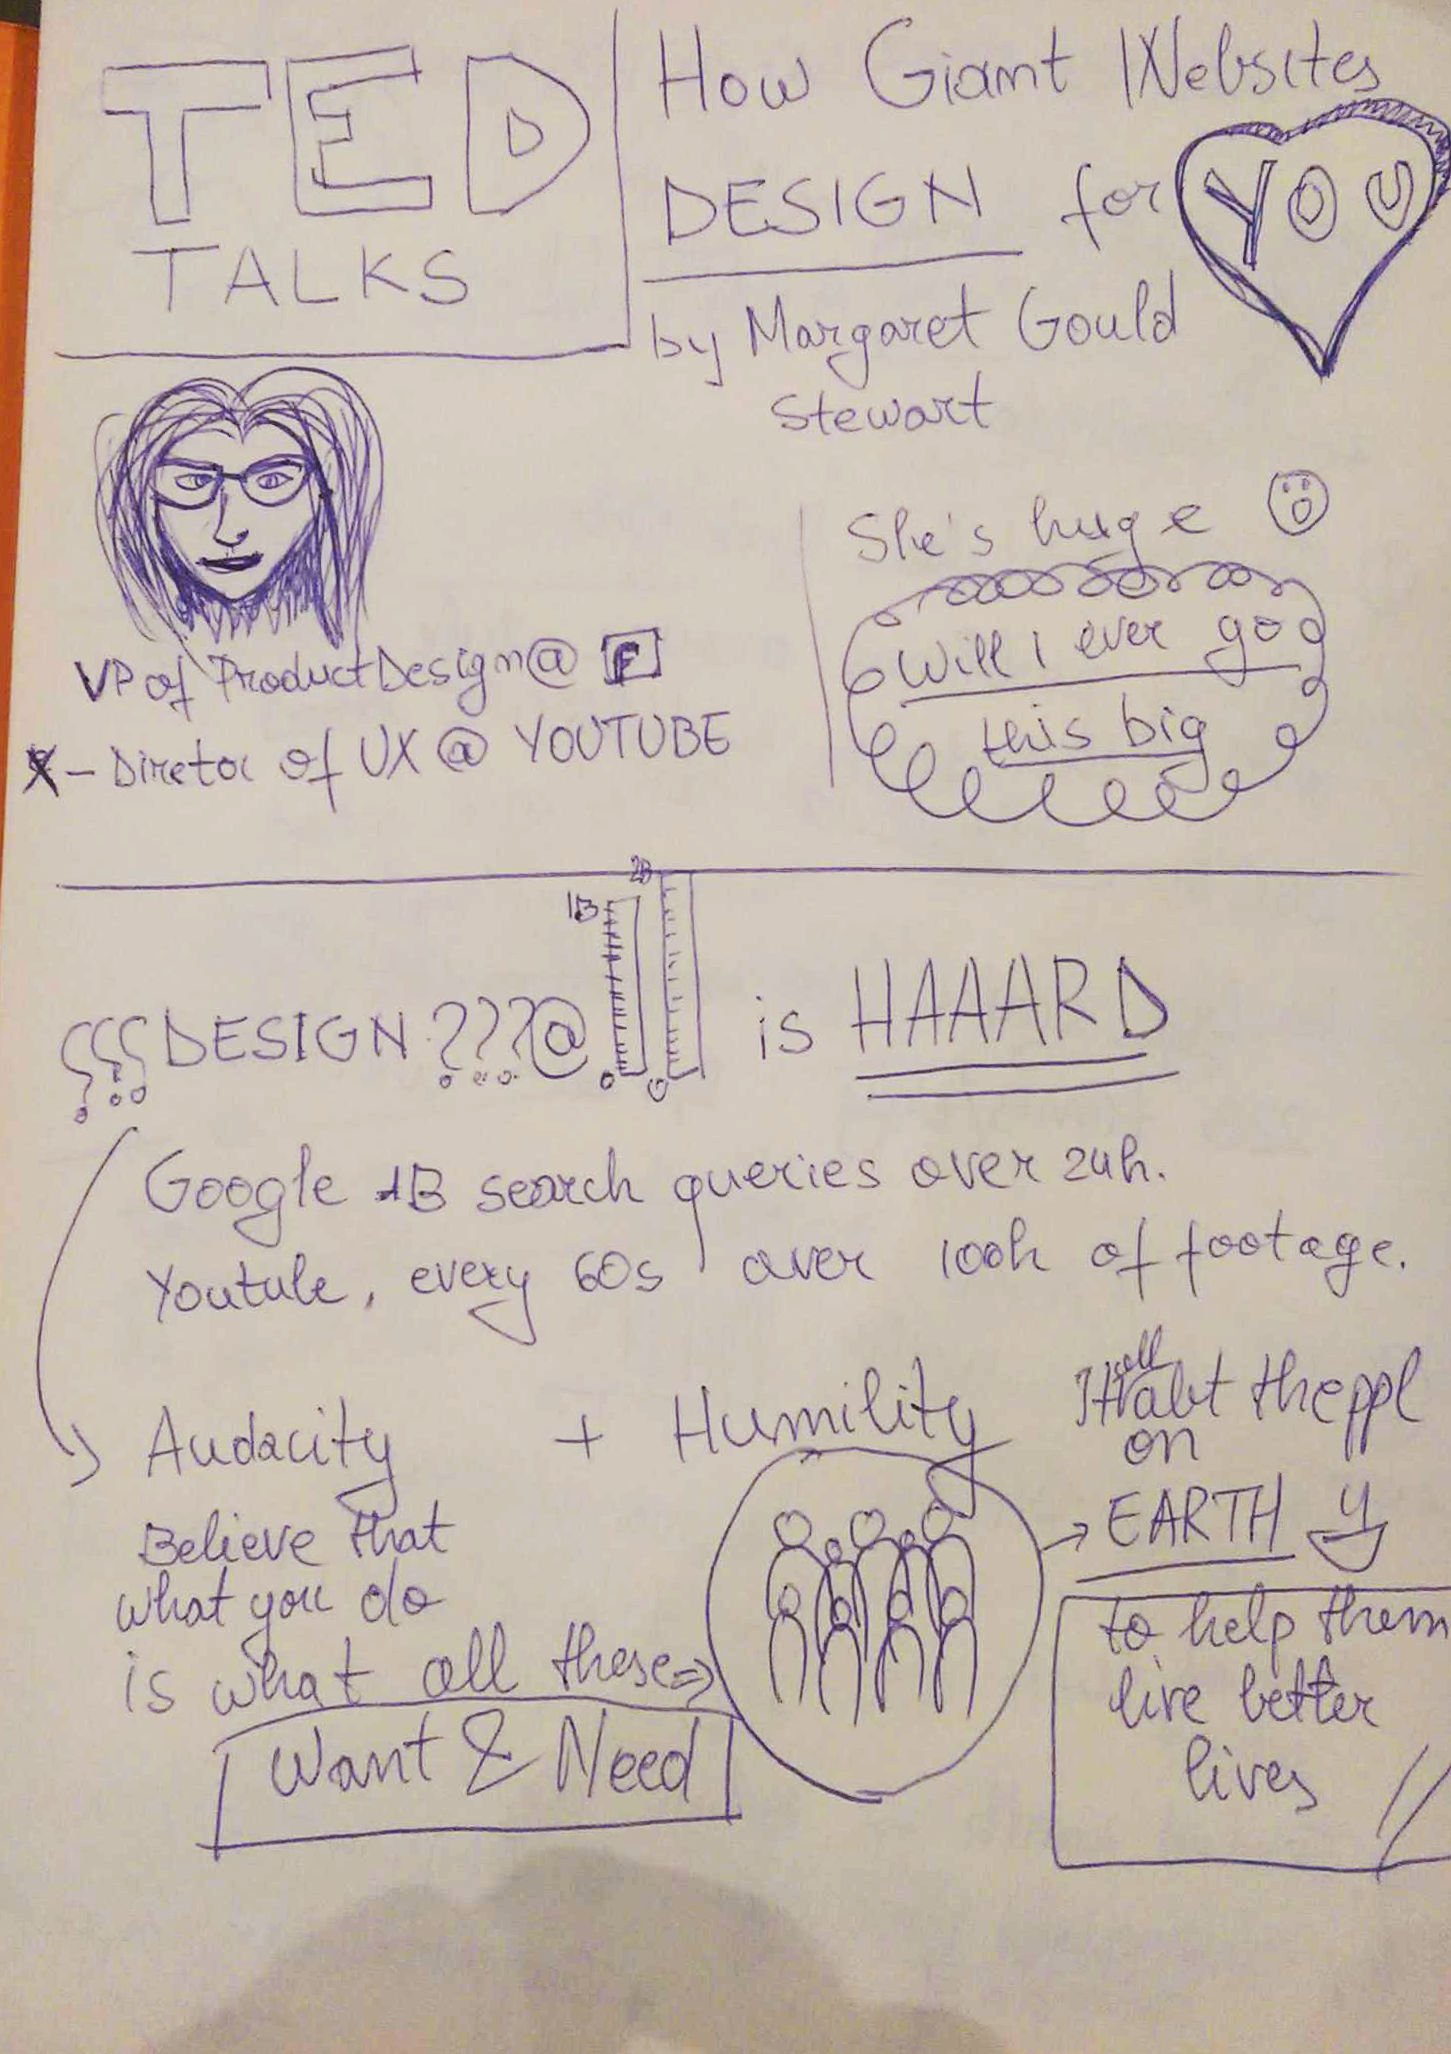 TED
TALKS
How Giant Websites
DESIGN for YOU
by Margaret Gould
Stewart
She's huge
Will I ever go
this big
VP of Product Design @ F
X - Diretor of UX @ YOUTUBE
1B
2B
???DESIGN???@
0
0
is HAAARD
Google 1B search queries over 24h.
Youtube, every 60s over 100h of footage.
Audacity + Humility
Believe that
what you do
is what all these
Want & Need
It all abt the ppl
on
EARTH
to help them
live better
lives